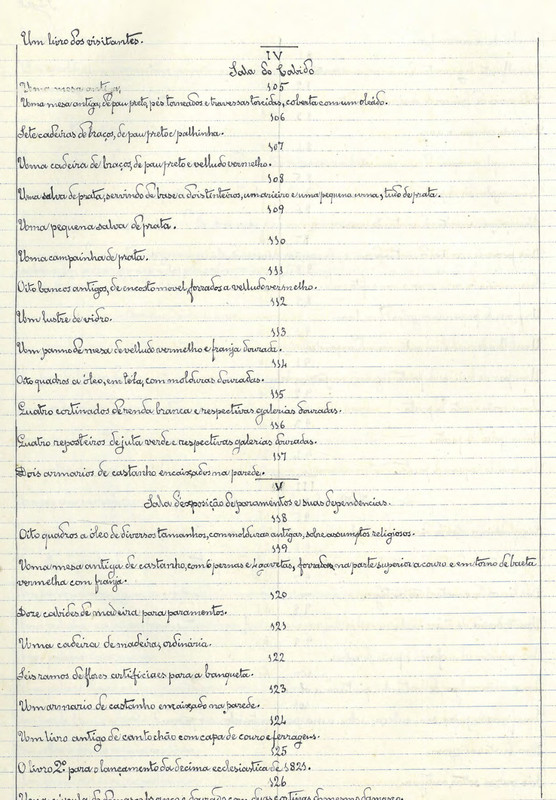 Um livro dos visitantes.
IV
Sala do Cabido
Uma mesa antiga,
105
Uma mesa antiga, de pau preto, pés torneados e travessas torcidas, coberta com um oleado.
106
Sete cadeiras de braços, de pau preto e palhinha.
107
Uma cadeira de braços, de pau preto e velludo vermelho.
108
Uma salva de prata, servindo de base a dois tinteiros, um arieiro e uma pequena urna, tudo de prata.
109
Uma pequena salva de prata.
110
Uma campainha de prata.
111
Oito bancos antigos, de encosto movel, forrados a velludo vermelho.
112
Um lustre de vidro.
113
Um panno de mesa de velludo vermelho e franja dourada.
114
Oito quadros a óleo, em téla, com molduras douradas.
115
Quatro cortinados de renda branca e respectivas galerias douradas.
116
Quatro reposteiros de juta verde e respectivas galerias douradas.
117
Dois armarios de castanho encaixados na parede.
V
Sala d'exposição de paramentos e suas dependencias.
118
Oito quadros a óleo de diversos tamanhos, com molduras antigas, sobre assumptos religiosos.
119
Uma mesa antiga de castanho, com 6 pernas e 4 gavetas, forrada, na parte superior a couro e em torno de baeta
vermelha com franja.
120
Doze cabides de madeira para paramentos.
121
Uma cadeira de madeira, ordinária.
122
Seis ramos de flores artificiaes para a banqueta.
123
Um armario de castanho encaixado na parede.
124
Um livro antigo de cantochão com capa de couro e ferragens.
125
O livro 2º para o lançamento da decima ecclesiastica de 1821.
126